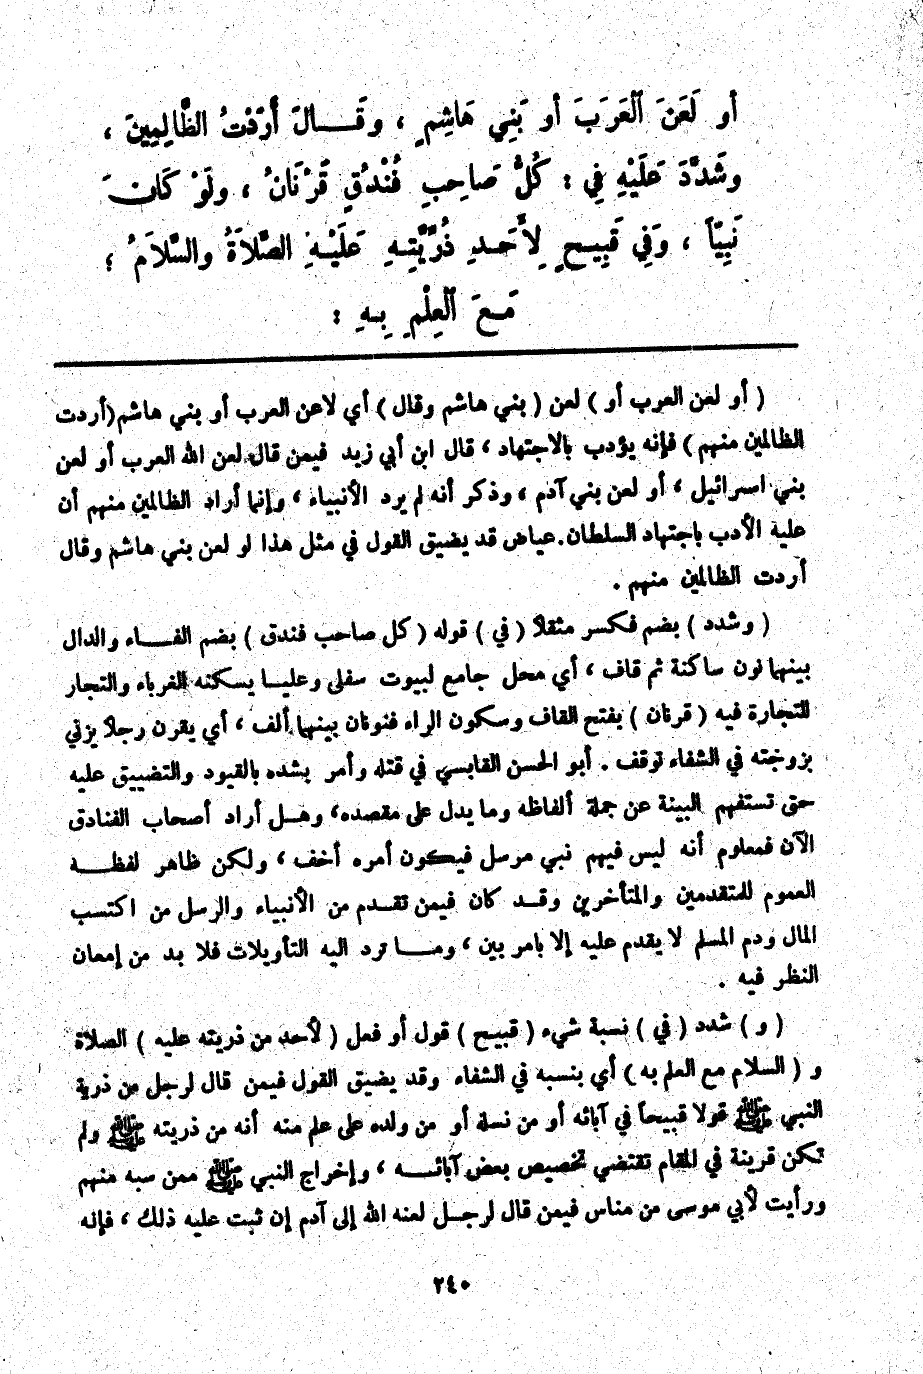 أو لَعَنَ ٱلْعَرَبَ أو بَنِي هَاشِمٍ ، وقَـالَ أَرَدْتُ الظَّالِمِينَ ،
وشَدَّدَ عَلَيْهِ فِي : كُلُّ صَاحِبِ فُنْدُقٍ قَرْنَانُ ، ولَوْ كَانَ
نَبِيّاً ، وَفِي قَبِيـحٍ لِأَحَـدِ ذُرِّيَّتِـهِ عَلَيْـهِ الصَّلاَةُ والسَّلاَمُ ؛
مَـعَ ٱلْعِلْمِ بِـهِ :
( أو لعن العرب أو ) لعن ( بني هاشم وقال ) أي لاعن العرب أو بني هاشم(أردت
الظالمين منهم ) فإنه يؤدب بالاجتهاد ، قال ابن أبي زيد فيمن قال لعن الله العرب أو لعن
بني اسرائيل ، أو لعن بني آدم ، وذكر أنه لم يرد الأنبياء ، وإنما أراد الظالمين منهم أن
عليه الأدب باجتهاد السلطان.عياض قد يضيق القول في مثل هذا لو لعن بني هاشم وقال
أردت الظالمين منهم .
( وشدد ) بضم فكسر مثقلاً ( في ) قوله ( كل صاحب فندق ) بضم الفـاء والدال
بينهما نون ساكنة ثم قاف ، أي محل جامع لبيوت سفلى وعليـا يسكنه الغرباء والتجار
للتجارة فيه ( قرنان ) بفتح القاف وسكون الراء فنونان بينهما ألف ، أي يقرن رجلاً يزني
بزوجته في الشفاء توقف . أبو الحسن القابسي في قتله وأمر بشده بالقيود والتضييق عليه
حتى تستفهم البينة عن جملة ألفاظه وما يدل على مقصده، وهـل أراد أصحاب الفنادق
الآن فمعلوم أنه ليس فيهم نبي مرسل فيكون أمره أخف ، ولكن ظاهر لفظـه
العموم للمتقدمين والمتأخرين وقـد كان فيمن تقـدم من الأنبياء والرسل من اكتسب
المال ودم المسلم لا يقدم عليه إلا بامر بين ، ومـا ترد اليه التأويلات فلا بد من إمعان
النظر فيه .
( و ) شدد ( في ) نسبة شيء ( قبيح ) قول أو فعل ( لأحد من ذريته عليه ) الصلاة
و ( السلام مع العلم به ) أي بنسبه في الشفاء وقد يضيق القول فيمن قال لرجل من ذرية
النبي ﷺ قولا قبيحاً في آبائه أو من نسله أو من ولده على علم منه أنه من ذريته ﷺ ولم
تكن قرينة في المقام تقتضي تخصيص بعض آبائـه ، وإخراج النبي ﷺ ممن سبه منهم
ورأيت لأبي موسى من مناس فيمن قال لرجـل لعنه الله إلى آدم إن ثبت عليه ذلك ، فإنه
٢٤٠